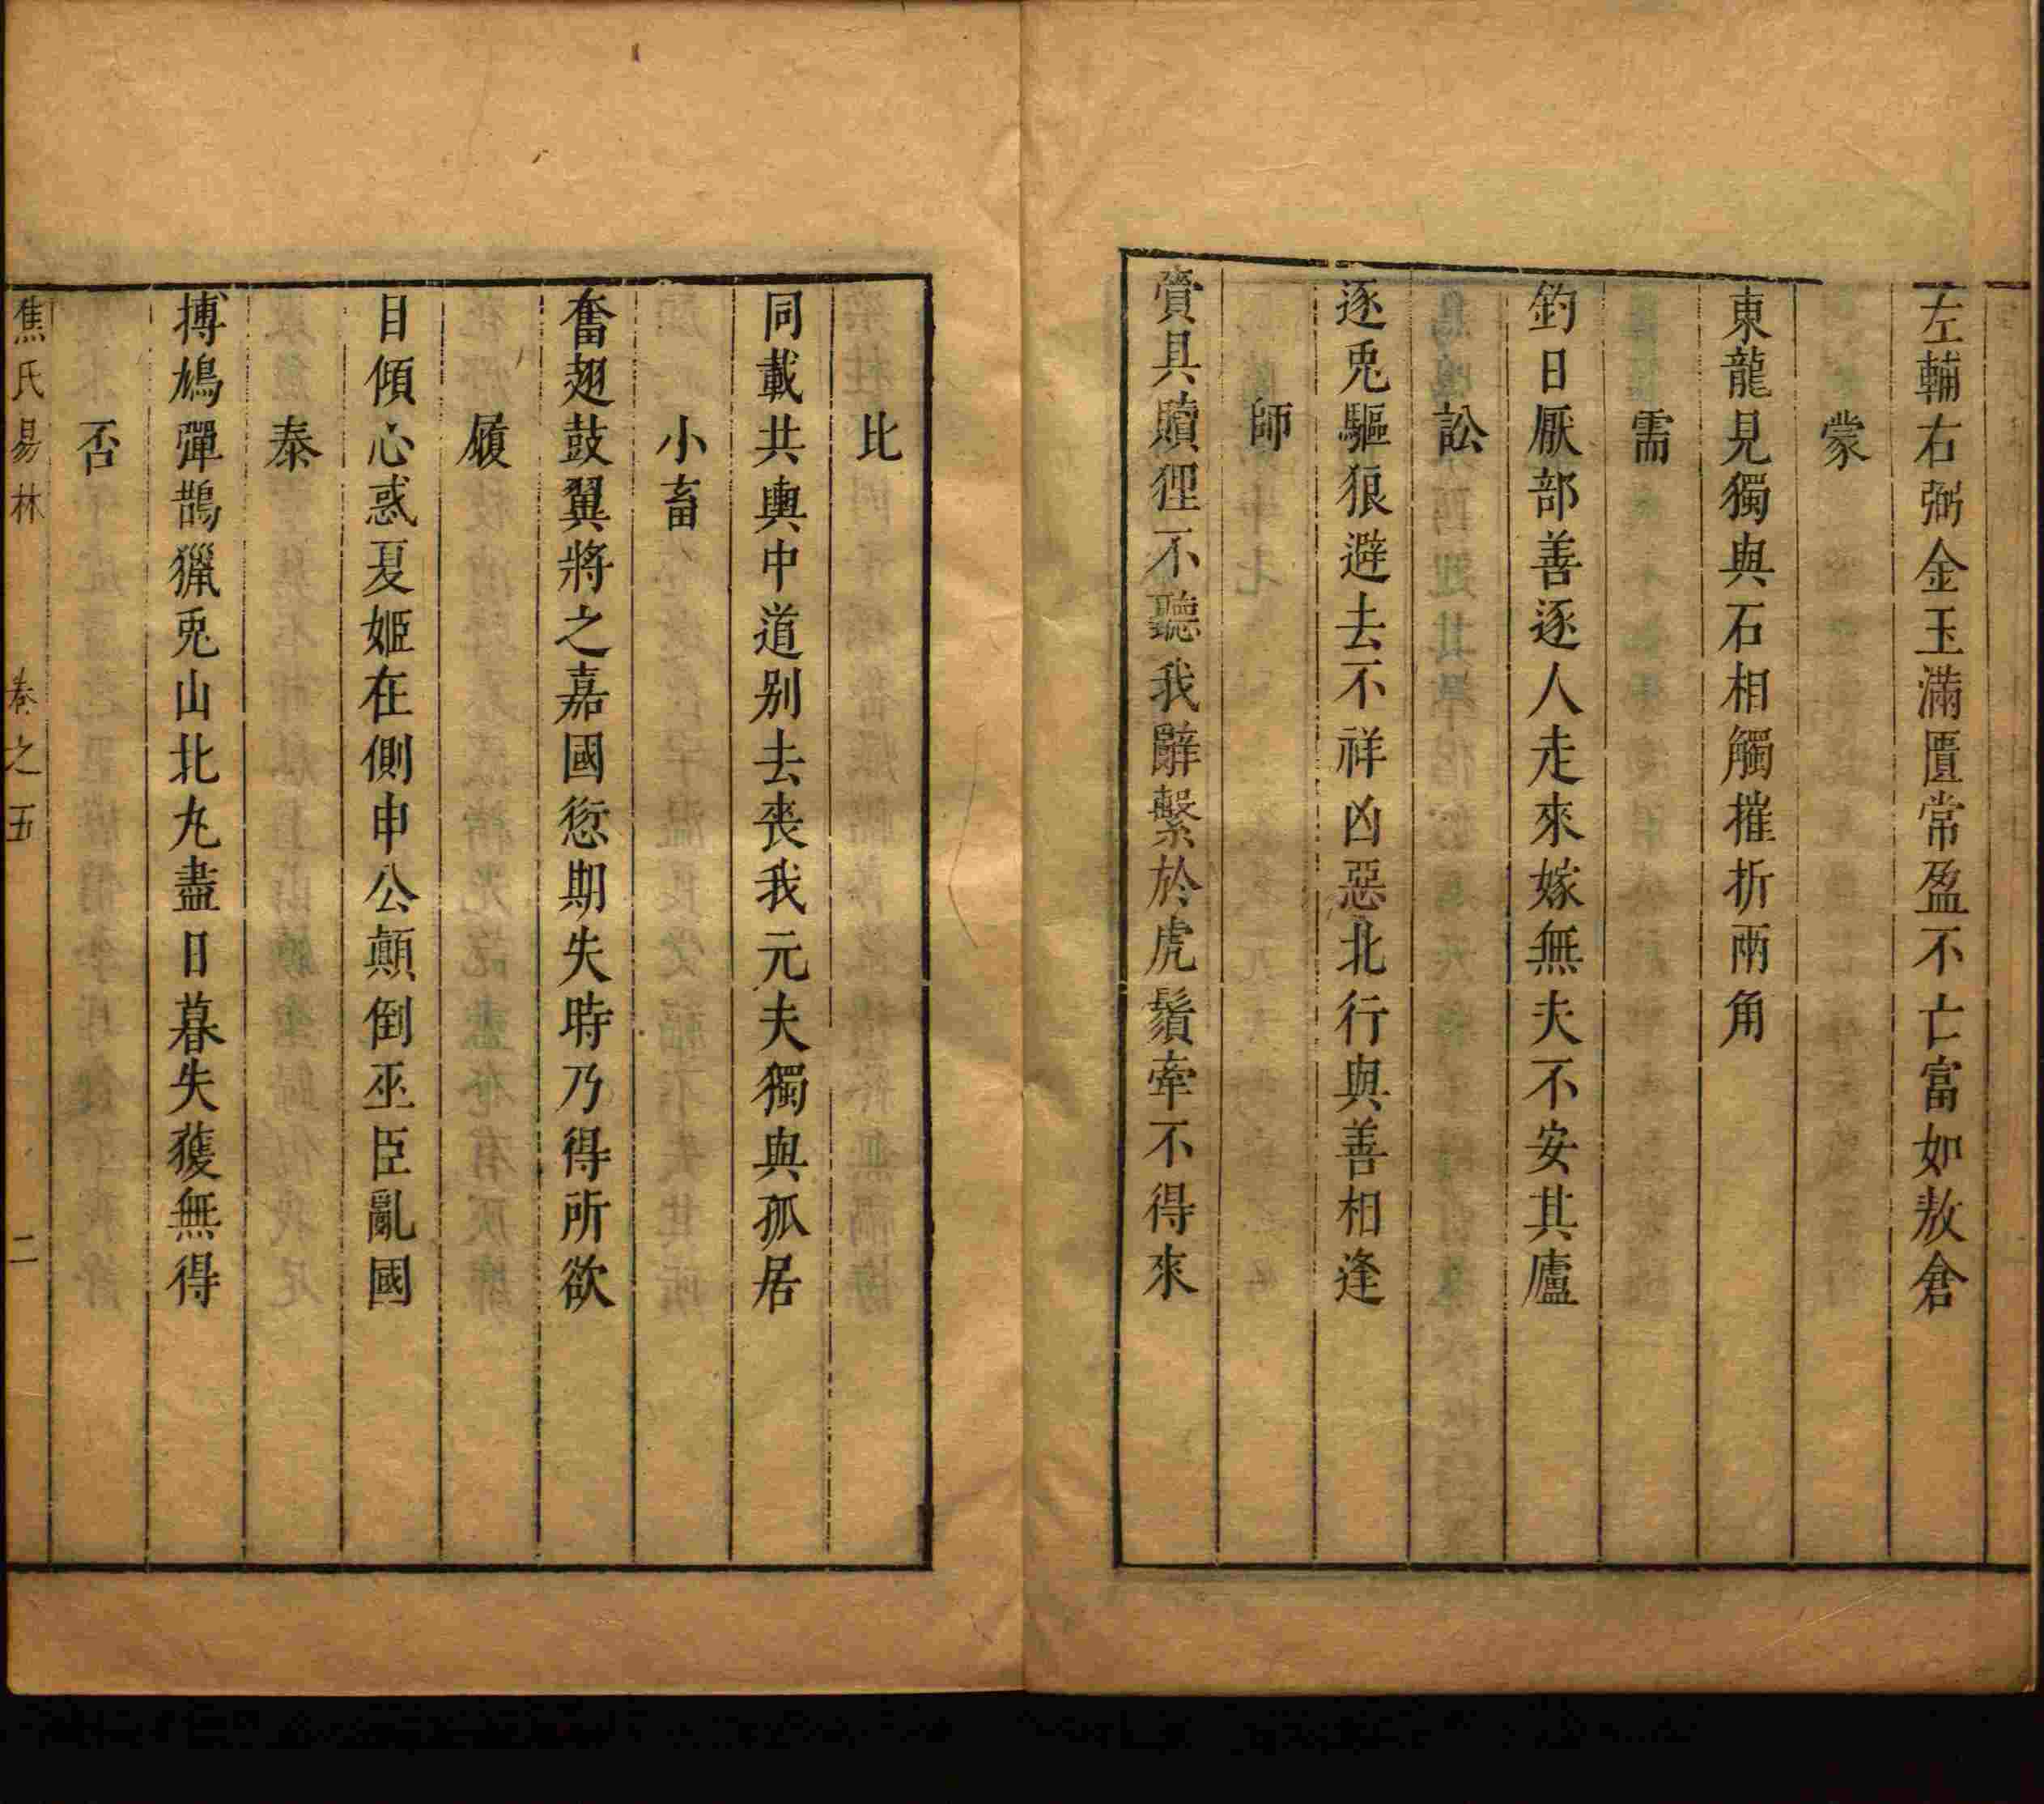 左輔右弼金玉滿匱常盈不亡富如敖倉
蒙
東龍見獨與石相觸摧折兩角
需
釣日厭部善逐人走來嫁無夫不安其廬
訟
逐兎驅狼避去不祥凶惡北行與善相逢
師
賫具贖狸不聽我辭繫於虎鬚牽不得來
比
同載共輿中道别去喪我元夫獨與孤居
小畜
奮翅鼓翼將之嘉國愆期失時乃得所欲
履
日傾心惑夏姬在側申公顛倒巫臣亂國
泰
搏鳩彈鵲獵兎山北丸盡日暮失獲無得
否
焦氏易林 卷之五 二